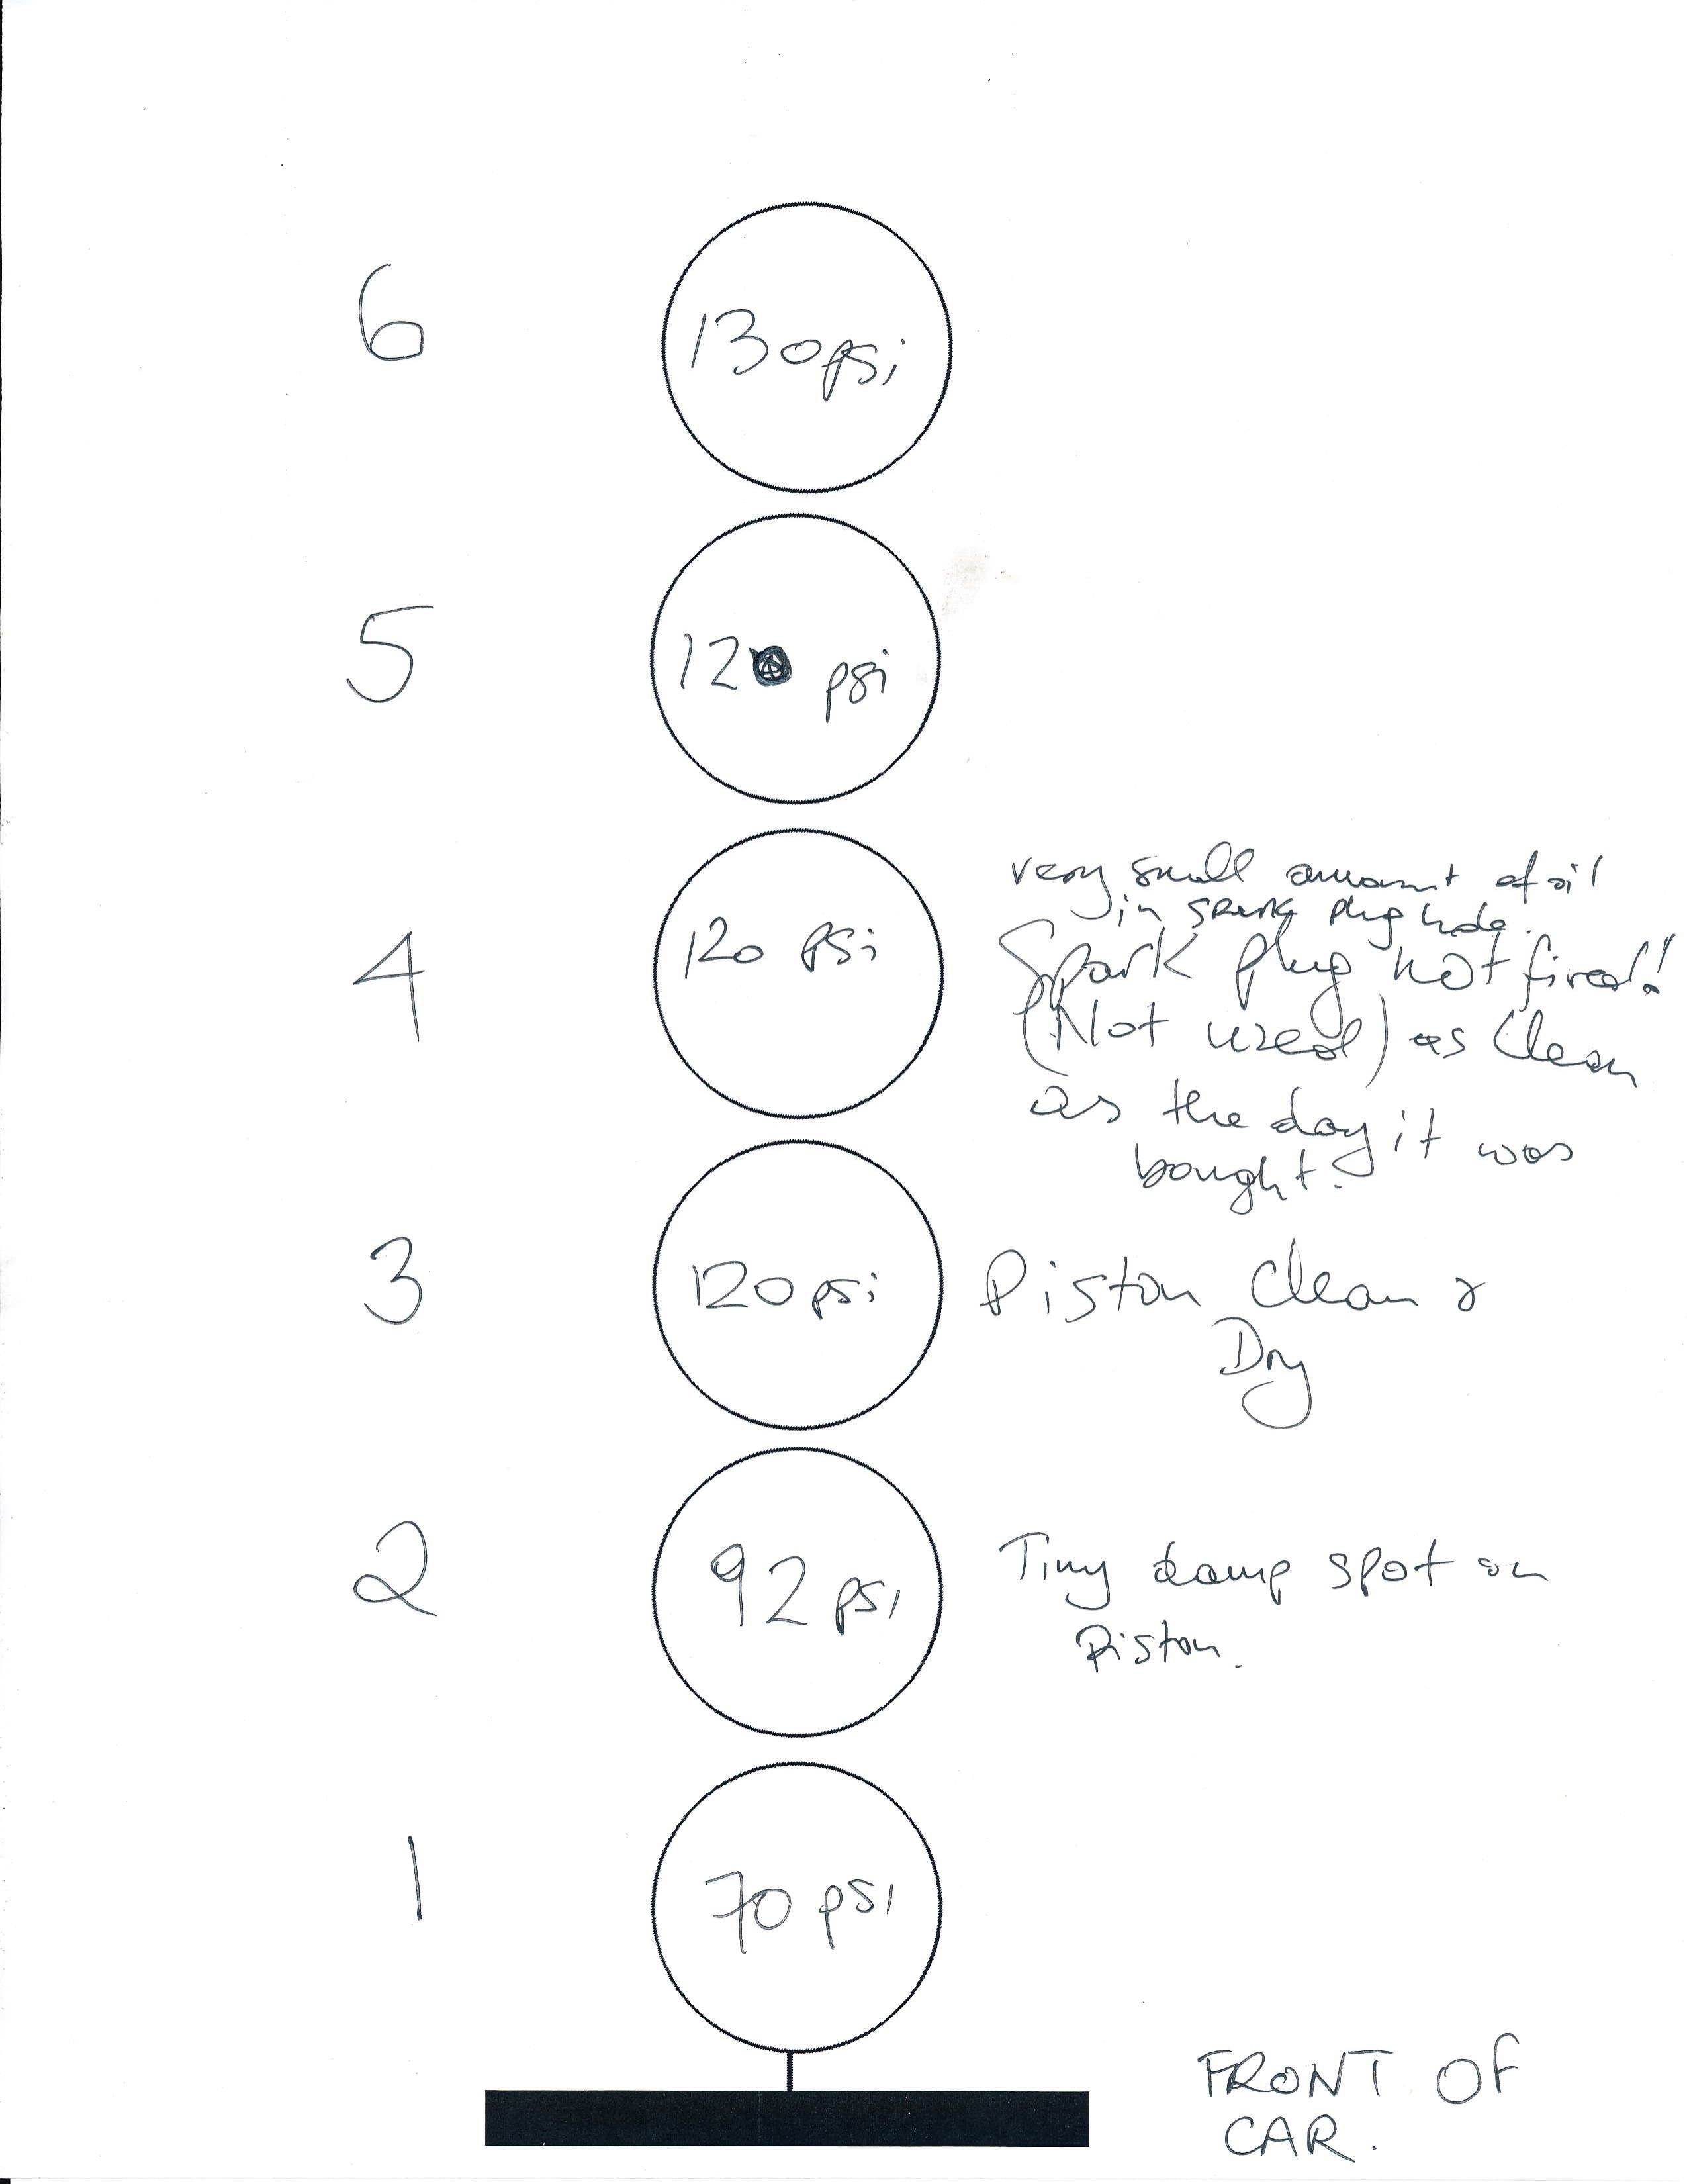 6
130psi
5
120 psi
very small amount of oil
in spark plug hole.
4
120 psi
Spark plug not fired!
(Not used) as clean
as the day it was
bought.
3
120psi
Piston clean &
Dry
2
92 psi
Tiny damp spot on
Piston.
1
70 psi
FRONT OF
CAR.